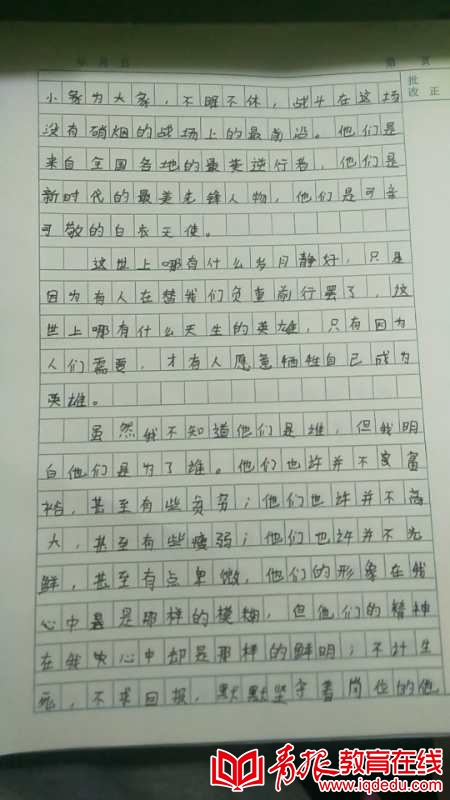 年 月 日 第 页
批
改 正
小家为大家，不眠不休，战斗在这场
没有硝烟的战场上的最前沿。他们是
来自全国各地的最美逆行者，他们是
新时代的最美先锋人物，他们是可亲
可敬的白衣天使。
这世上哪有什么岁月静好，只是
因为有人在替我们负重前行罢了，这
世上哪有什么天生的英雄，只有因为
人们需要，才有人愿意牺牲自己成为
英雄。
虽然我不知道他们是谁，但我明
白他们是为了谁。他们也许并不富
裕，甚至有些贫穷；他们也许并不高
大，甚至有些瘦弱；他们也许并不光
鲜，甚至有点卑微，他们的形象在我
心中是那样的模糊，但他们的精神
在我心中却是那样的鲜明；不计生
死，不求回报，默默坚守着岗位的他
青报教育在线
www.iqdedu.com